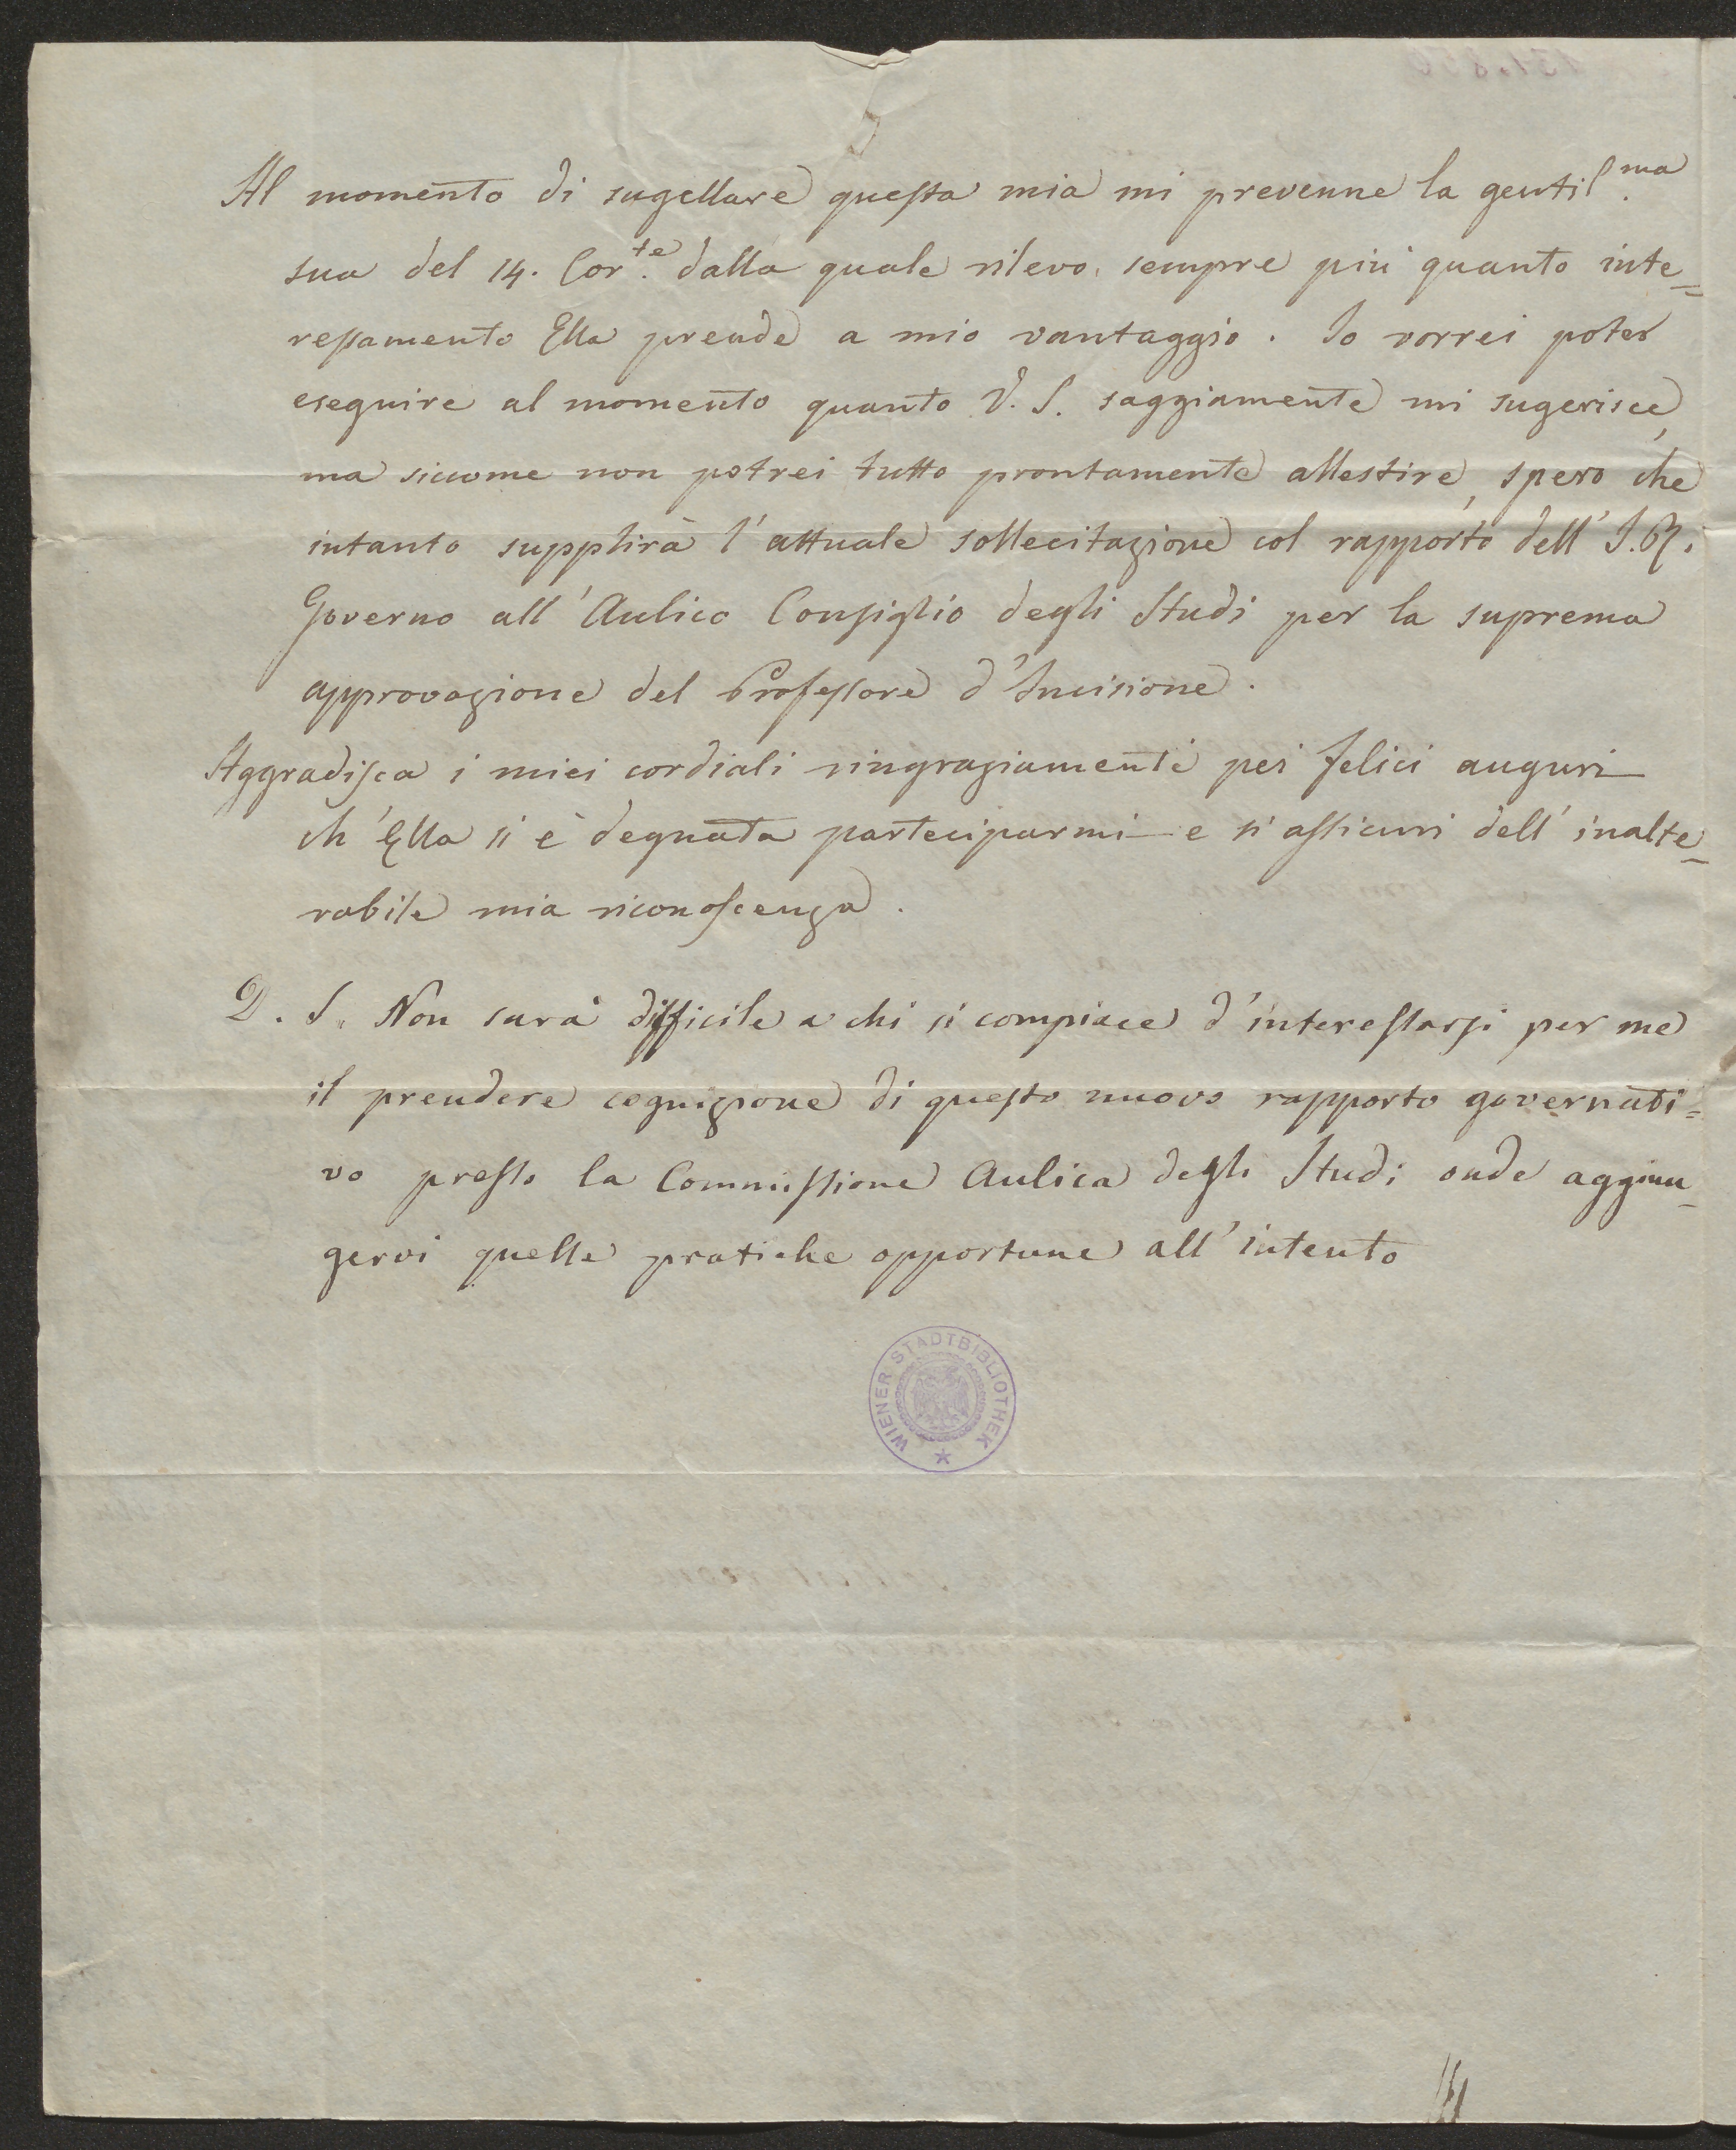 Al momento di sugellare questa mia mi prevenne la gentil.ma
sua del 14. Cor.te dalla quale rilevo sempre più quanto inte=
ressamento Ella prende a mio vantaggio. Io vorrei poter
eseguire al momento quanto V. S. saggiamente mi sugerisce,
ma siccome non potrei tutto prontamente allestire, spero che
intanto supplirà l'attuale sollecitazione col rapporto dell'I.R.
Governo all'Aulico Consiglio degli Studi per la suprema
approvazione del Professore d'Incisione.
Aggradisca i miei cordiali ringraziamenti pei felici auguri
ch'Ella si è degnata parteciparmi e si assicuri dell'inalte=
rabile mia riconoscenza.
P. S. Non sarà difficile a chi si compiace d'interessarsi per me
il prendere cognizione di questo nuovo rapporto governati=
vo presso la Commissione Aulica degli Studi onde aggiun=
gervi quelle pratiche opportune all'intento
WIENER STADTBIBLIOTHEK